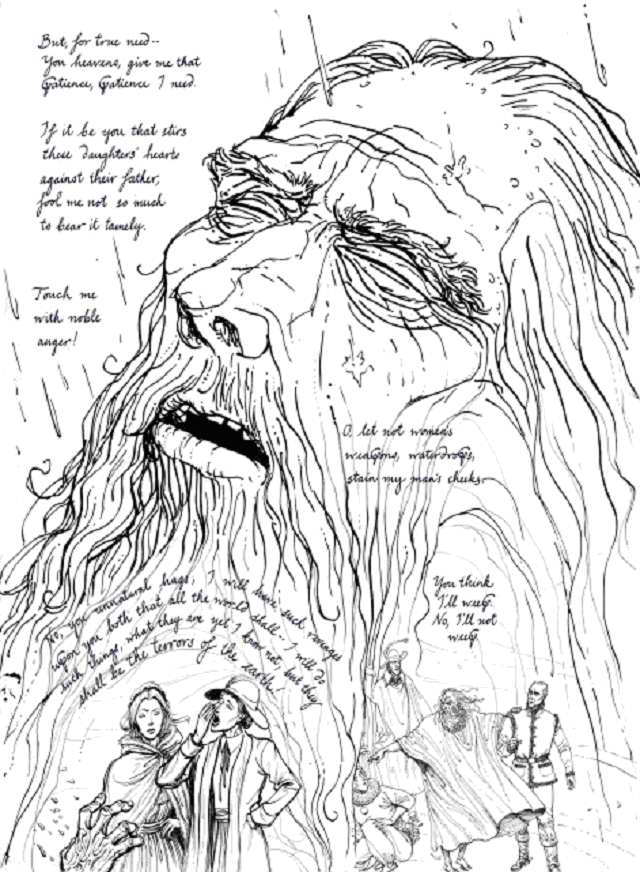 But, for true need--
You heavens, give me that
patience, patience I need.
If it be you that stirs
these daughters' hearts
against their father,
fool me not so much
to bear it tamely.
Touch me
with noble
anger!
O, let not women's
weapons, waterdrops,
stain my man's cheeks.
No, you unnatural hags, I will have such revenges
upon you both that all the world shall-- I will do
such things, what they are yet I know not, but they
shall be the terrors of the earth.
You think
I'll weep.
No, I'll not
weep